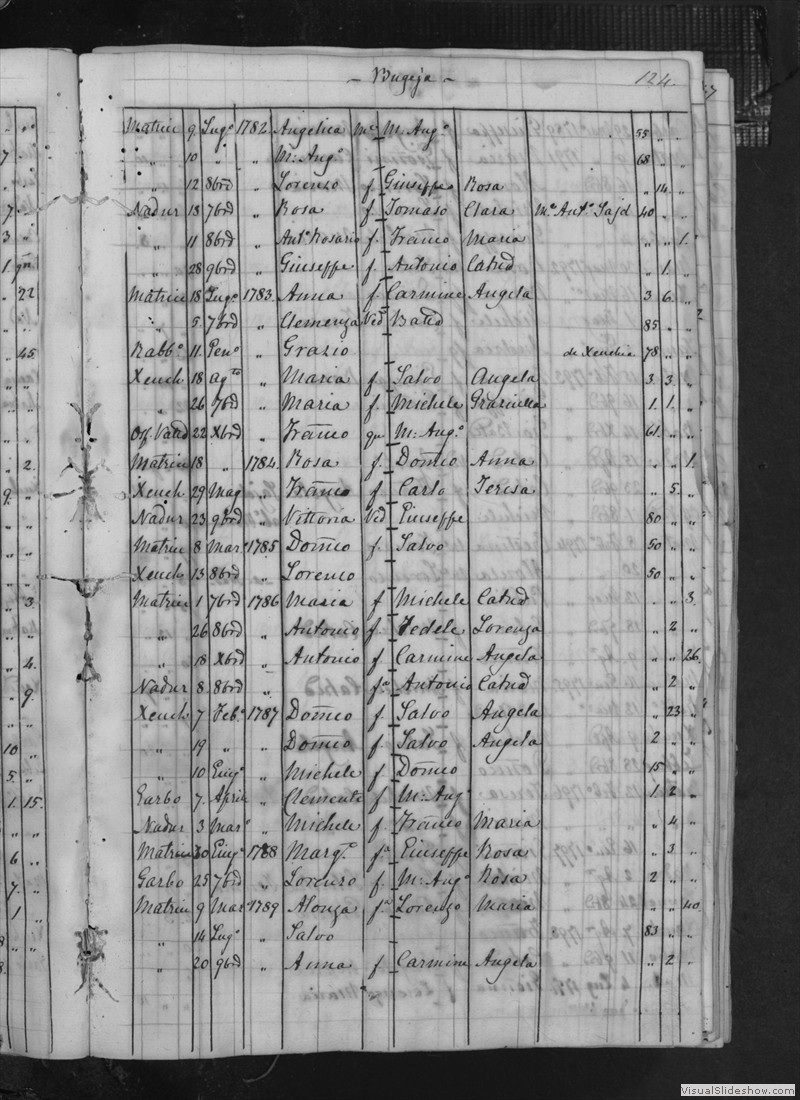 - Bugeja -
124.
Matrice 9 Lugo 1782 Angelica Mo M. Augo 55 " "
" 10 " " M: Augo 68 " "
" 12 8bre " Lorenzo f. Giuseppe Rosa " 14 "
Nadur 18 7bre " Rosa f. Tomaso Clara 40 " "
" 11 8bre " Anto Rosario f. Franco Maria " " 1.
" 28 9bre " Giuseppe f. Antonio Catna " 1. "
Matrice 18 Lugo 1783. Anna f. Carmine Angela 3 6. "
" 5 7bre " Clemenza Ved 85 " "
Rabbo 11. " Grazio de Xeuchia 78 " "
Xeuch 18 agto " Maria f. Salvo Angela 3. 3. "
" 26 7bre " Maria f. Michele Graziulla 1. 1. "
22 Xbre " Franco qm M: Augo 61. " "
Matrice 18 " 1784. Rosa f. Domco Anna " " 1.
Xeuch 29 Mag " Franco f. Carlo Teresa " 5. "
Nadur 23 9bre " Vittoria Ved Giuseppe 80 " "
Matrice 8 Mar 1785 Domco f. Salvo 50 " "
Xeuch 13 8bre " Lorenzo 50 " "
Matrice 1 7bre 1786 Maria f Michele Catna " " 3.
" 26 8bre " Antonio f. Fedele Lorenza " 2 "
" 18 Xbre " Antonio f. Carmine Angela " " 26.
Nadur 8. 8bre " fa Antonio Catna " 2 "
Xeuch 7 Feb. 1787 Domco f. Salvo Angela " 23 "
" 19 " " Domco f. Salvo Angela 2 " "
" 10 Giugo " Michele f Domco 15 " "
Garbo 7. Aprile " Clemente f M: Augo 1. 2 "
Nadur 3 Maro " Michele f. Franco Maria " 4 "
Matrice 30 Giugo 1788 Marga fa Giuseppe Rosa " 3 "
Garbo 25 7bre " Lorenzo f. M: Augo Rosa 2 " "
Matrice 9 Maro 1789 Alonza fa Lorenzo Maria " " 40.
" 14 Lugo " Salvo 83 " "
" 20 9bre " Anna f Carmine Angela " 2 "
VisualSlideshow.com